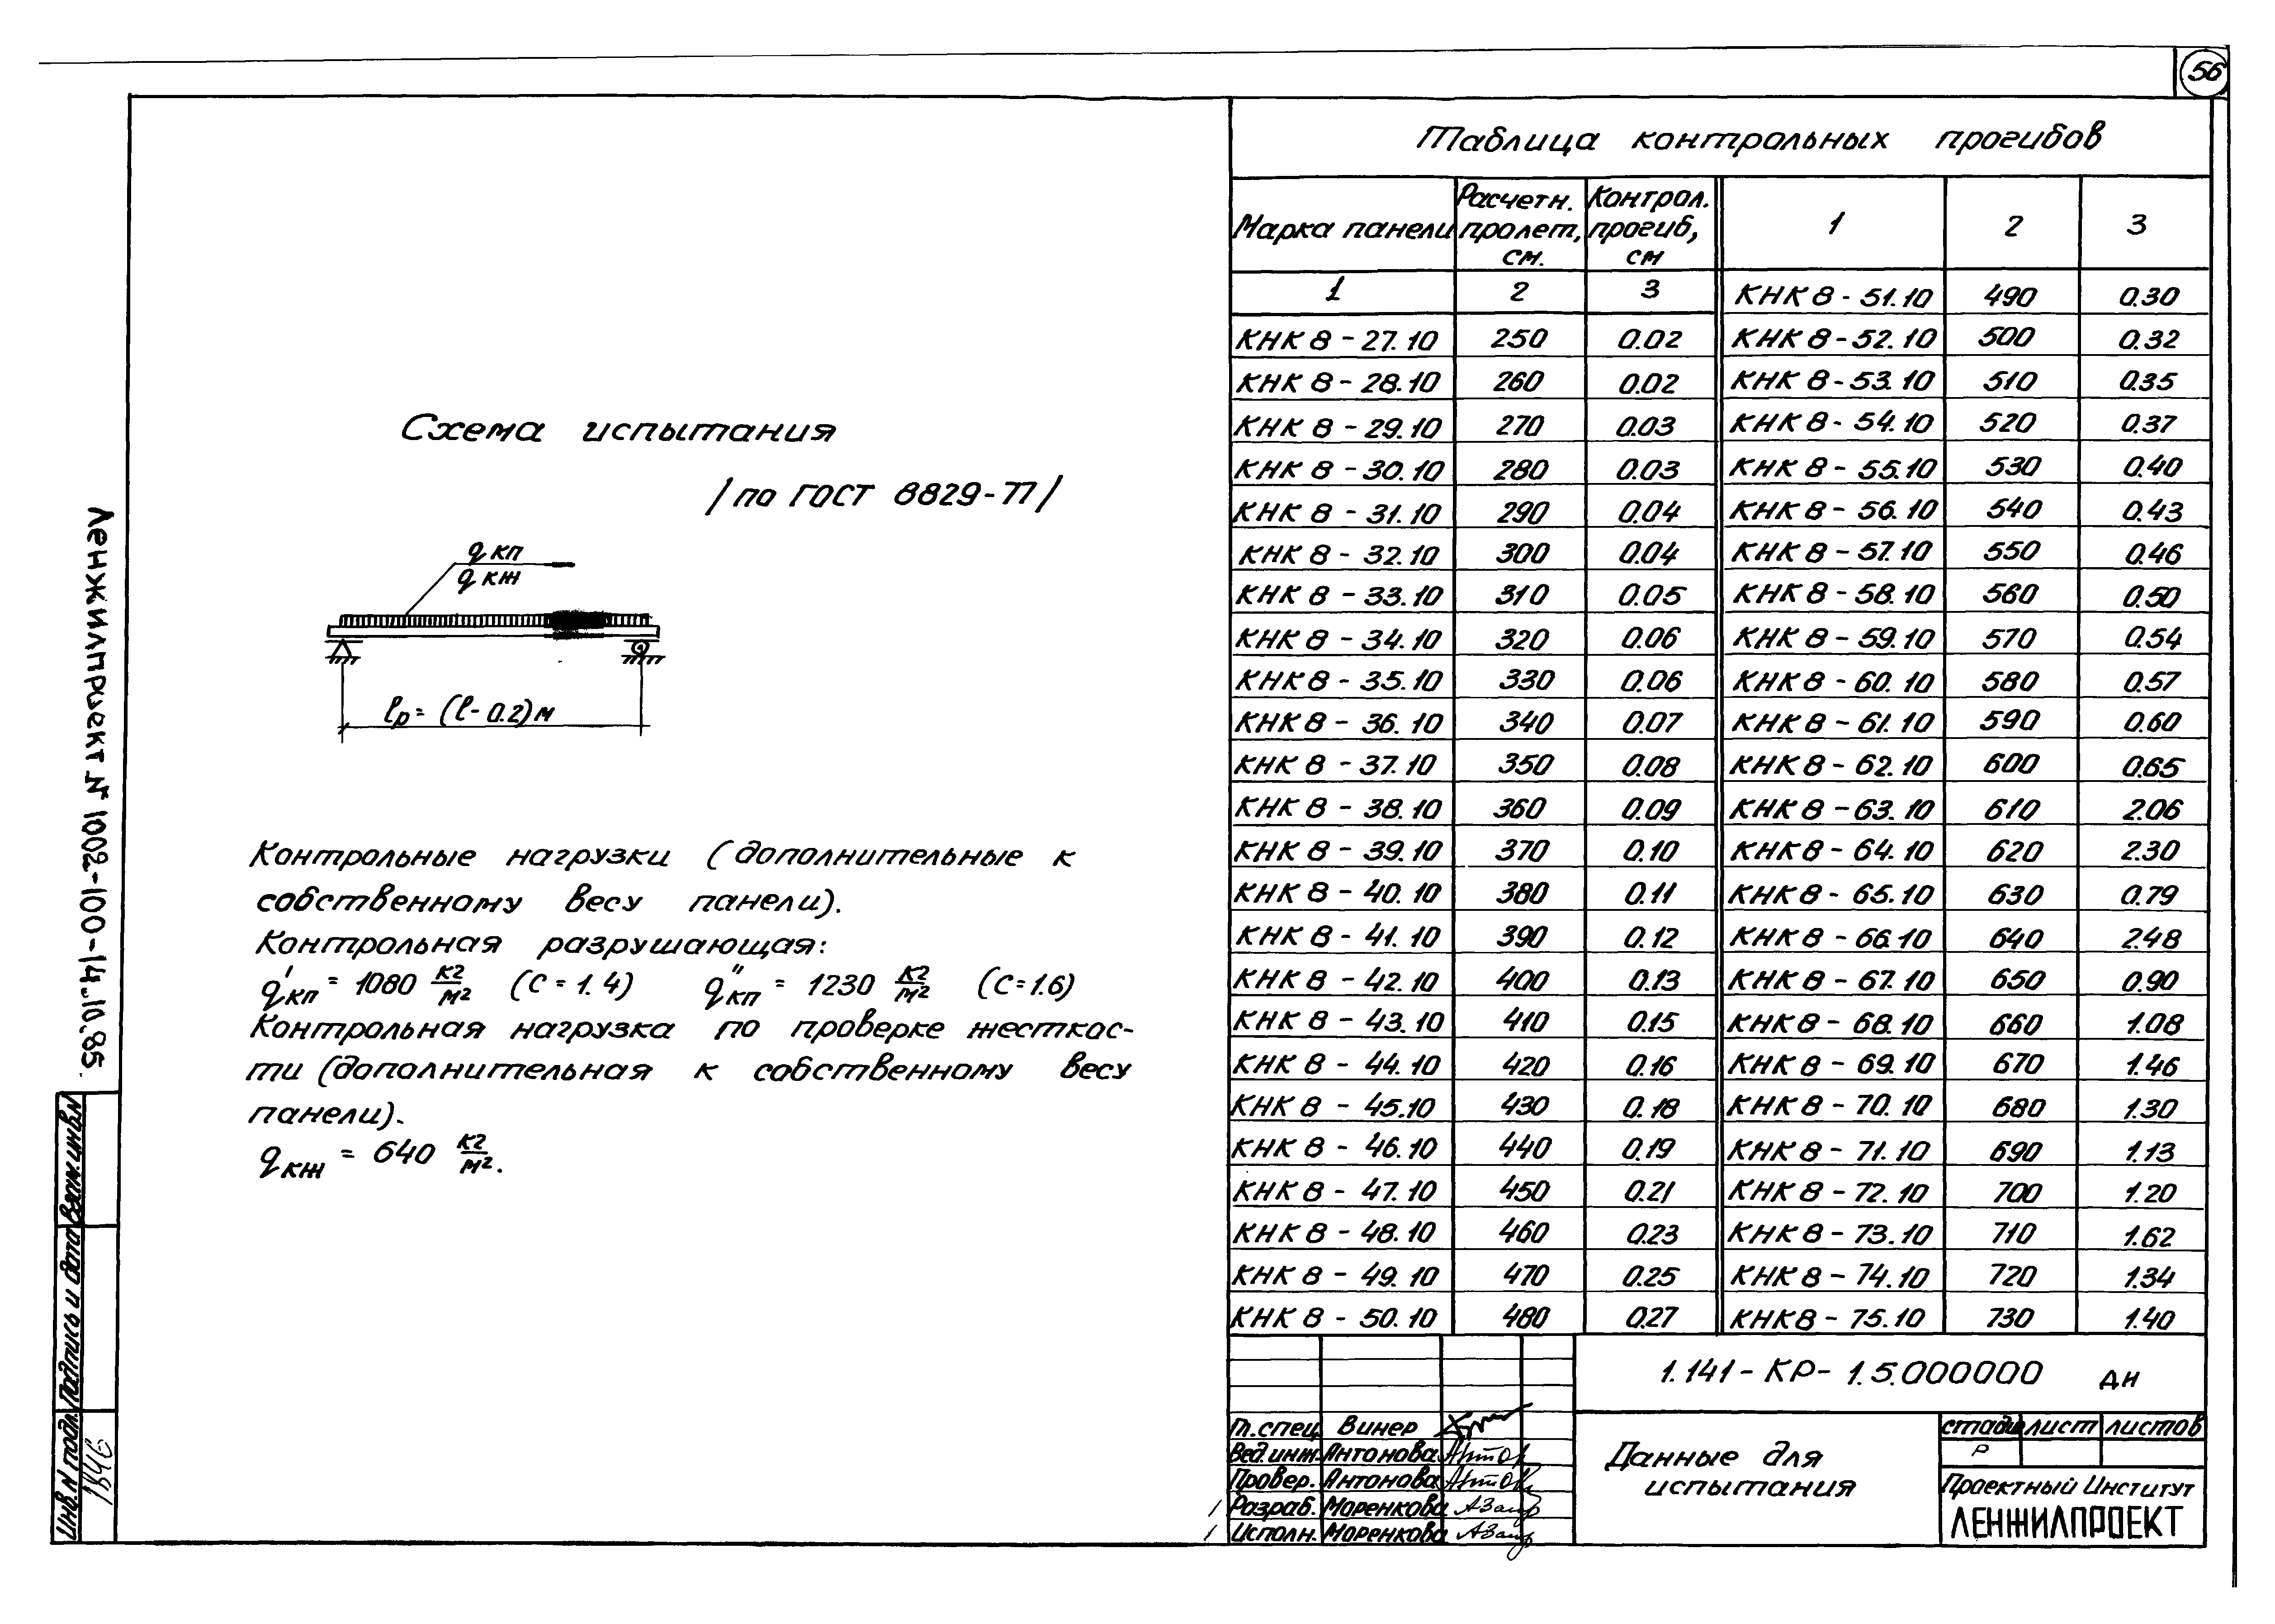 56
Схема испытания
/по ГОСТ 8829-77/
qкп
qкж
lр = (l - 0.2)м
Контрольные нагрузки (дополнительные к
собственному весу панели).
Контрольная разрушающая:
q'кп = 1080 кг/м² (С = 1.4) q''кп = 1230 кг/м² (С = 1.6)
Контрольная нагрузка по проверке жесткос-
ти (дополнительная к собственному весу
панели).
qкж = 640 кг/м².
Таблица контрольных прогибов
Марка панели Расчетн. пролет, см. Контрол. прогиб, см 1 2 3
1 2 3 КНК 8 - 51.10 490 0.30
КНК 8 - 27.10 250 0.02 КНК 8 - 52.10 500 0.32
КНК 8 - 28.10 260 0.02 КНК 8 - 53.10 510 0.35
КНК 8 - 29.10 270 0.03 КНК 8 - 54.10 520 0.37
КНК 8 - 30.10 280 0.03 КНК 8 - 55.10 530 0.40
КНК 8 - 31.10 290 0.04 КНК 8 - 56.10 540 0.43
КНК 8 - 32.10 300 0.04 КНК 8 - 57.10 550 0.46
КНК 8 - 33.10 310 0.05 КНК 8 - 58.10 560 0.50
КНК 8 - 34.10 320 0.06 КНК 8 - 59.10 570 0.54
КНК 8 - 35.10 330 0.06 КНК 8 - 60.10 580 0.57
КНК 8 - 36.10 340 0.07 КНК 8 - 61.10 590 0.60
КНК 8 - 37.10 350 0.08 КНК 8 - 62.10 600 0.65
КНК 8 - 38.10 360 0.09 КНК 8 - 63.10 610 2.06
КНК 8 - 39.10 370 0.10 КНК 8 - 64.10 620 2.30
КНК 8 - 40.10 380 0.11 КНК 8 - 65.10 630 0.79
КНК 8 - 41.10 390 0.12 КНК 8 - 66.10 640 2.48
КНК 8 - 42.10 400 0.13 КНК 8 - 67.10 650 0.90
КНК 8 - 43.10 410 0.15 КНК 8 - 68.10 660 1.08
КНК 8 - 44.10 420 0.16 КНК 8 - 69.10 670 1.46
КНК 8 - 45.10 430 0.18 КНК 8 - 70.10 680 1.30
КНК 8 - 46.10 440 0.19 КНК 8 - 71.10 690 1.13
КНК 8 - 47.10 450 0.21 КНК 8 - 72.10 700 1.20
КНК 8 - 48.10 460 0.23 КНК 8 - 73.10 710 1.62
КНК 8 - 49.10 470 0.25 КНК 8 - 74.10 720 1.34
КНК 8 - 50.10 480 0.27 КНК 8 - 75.10 730 1.40
1.141 - КР - 1.5.000000 ДИ
Гл.спец. Винер
Вед.инж. Антонова
Провер. Антонова
Разраб. Моренкова
Исполн. Моренкова
Данные для
испытания
стади лист листов
Р
Проектный Институт
ЛЕНЖИЛПРОЕКТ
Ленжилпроект № 1002-1100-14.10.85
Взам.инв.N
Подпись и дата
Инв.N подл.
1846